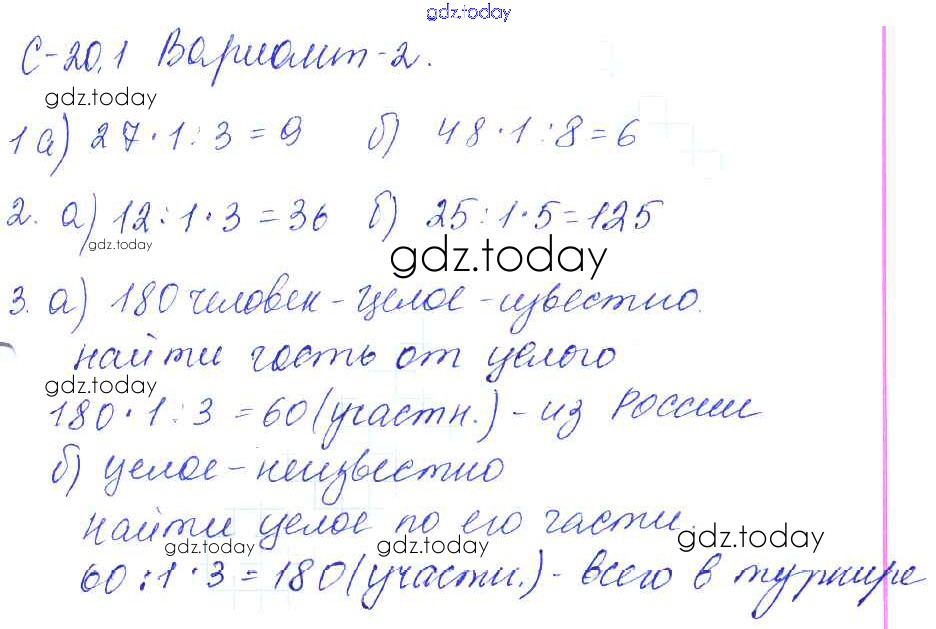 gdz.today
С-20,1 Вариант-2.
gdz.today
1 а) 27·1:3=9 б) 48·1:8=6
2. а) 12:1·3=36 б) 25:1·5=125
gdz.today
gdz.today
3. а) 180 человек - целое - известно.
найти часть от целого
gdz.today
180·1:3=60(участн.) - из России
б) целое - неизвестно
найти целое по его части.
gdz.today gdz.today gdz.today
60:1·3=180(участн.) - всего в турнире